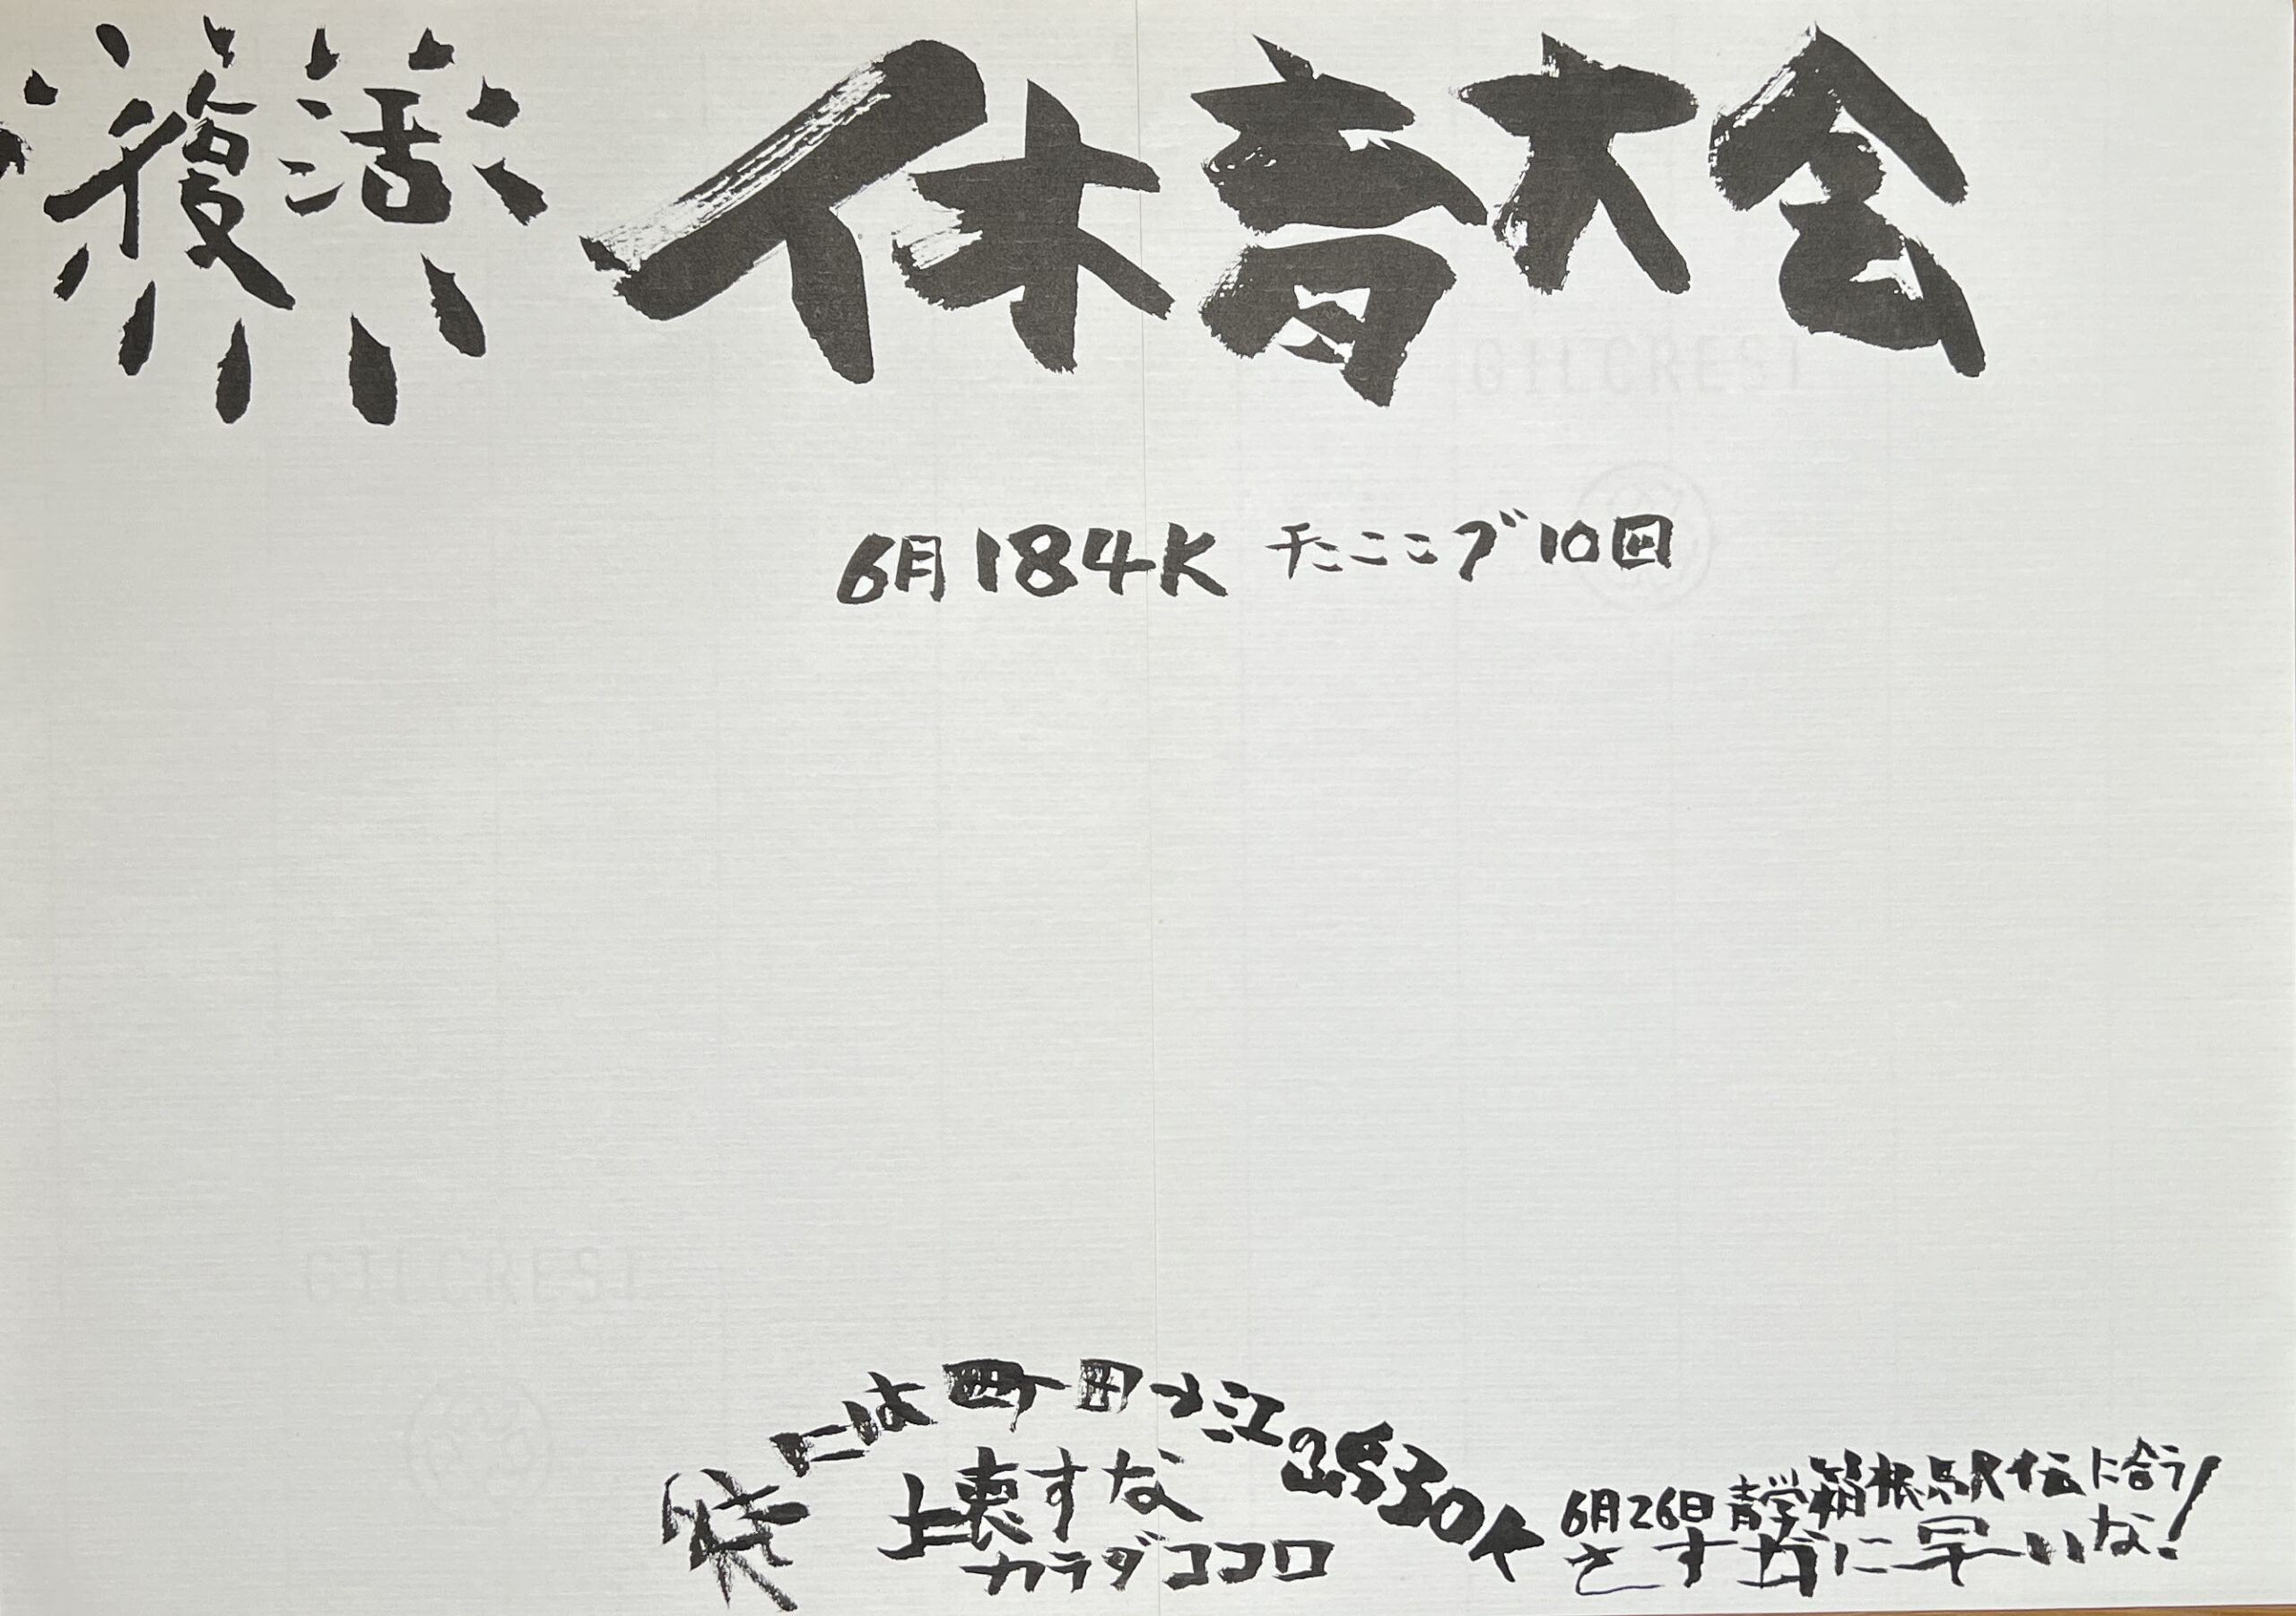 復活
休育大会
6月184K チたこここブ10回
GILCREST
GILCREST
には町田小江230K
壊すな
カラダココロ
6月26日青学箱根駅伝に合う
さすがに早いな!